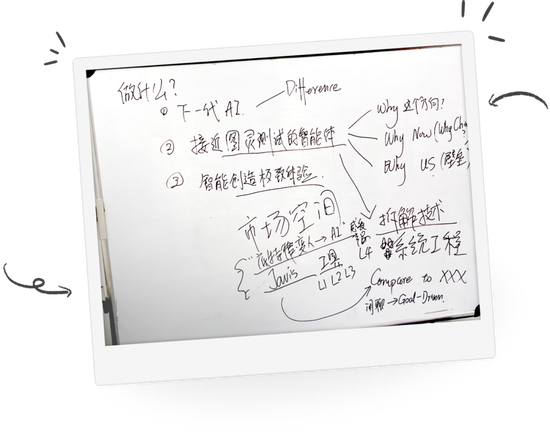 做什么?
① 下一代 AI. Difference
② 接近图灵测试的智能体
③ 智能创造极致体验.
Why 这个方向?
Why Now (Why Cha
Why US (壁垒)
市场空间
拆解技术
系统工程
→ AI"
L4
Javis 工具
L1 L2 L3
Compare to XXX
闲聊 → Goal-Driven